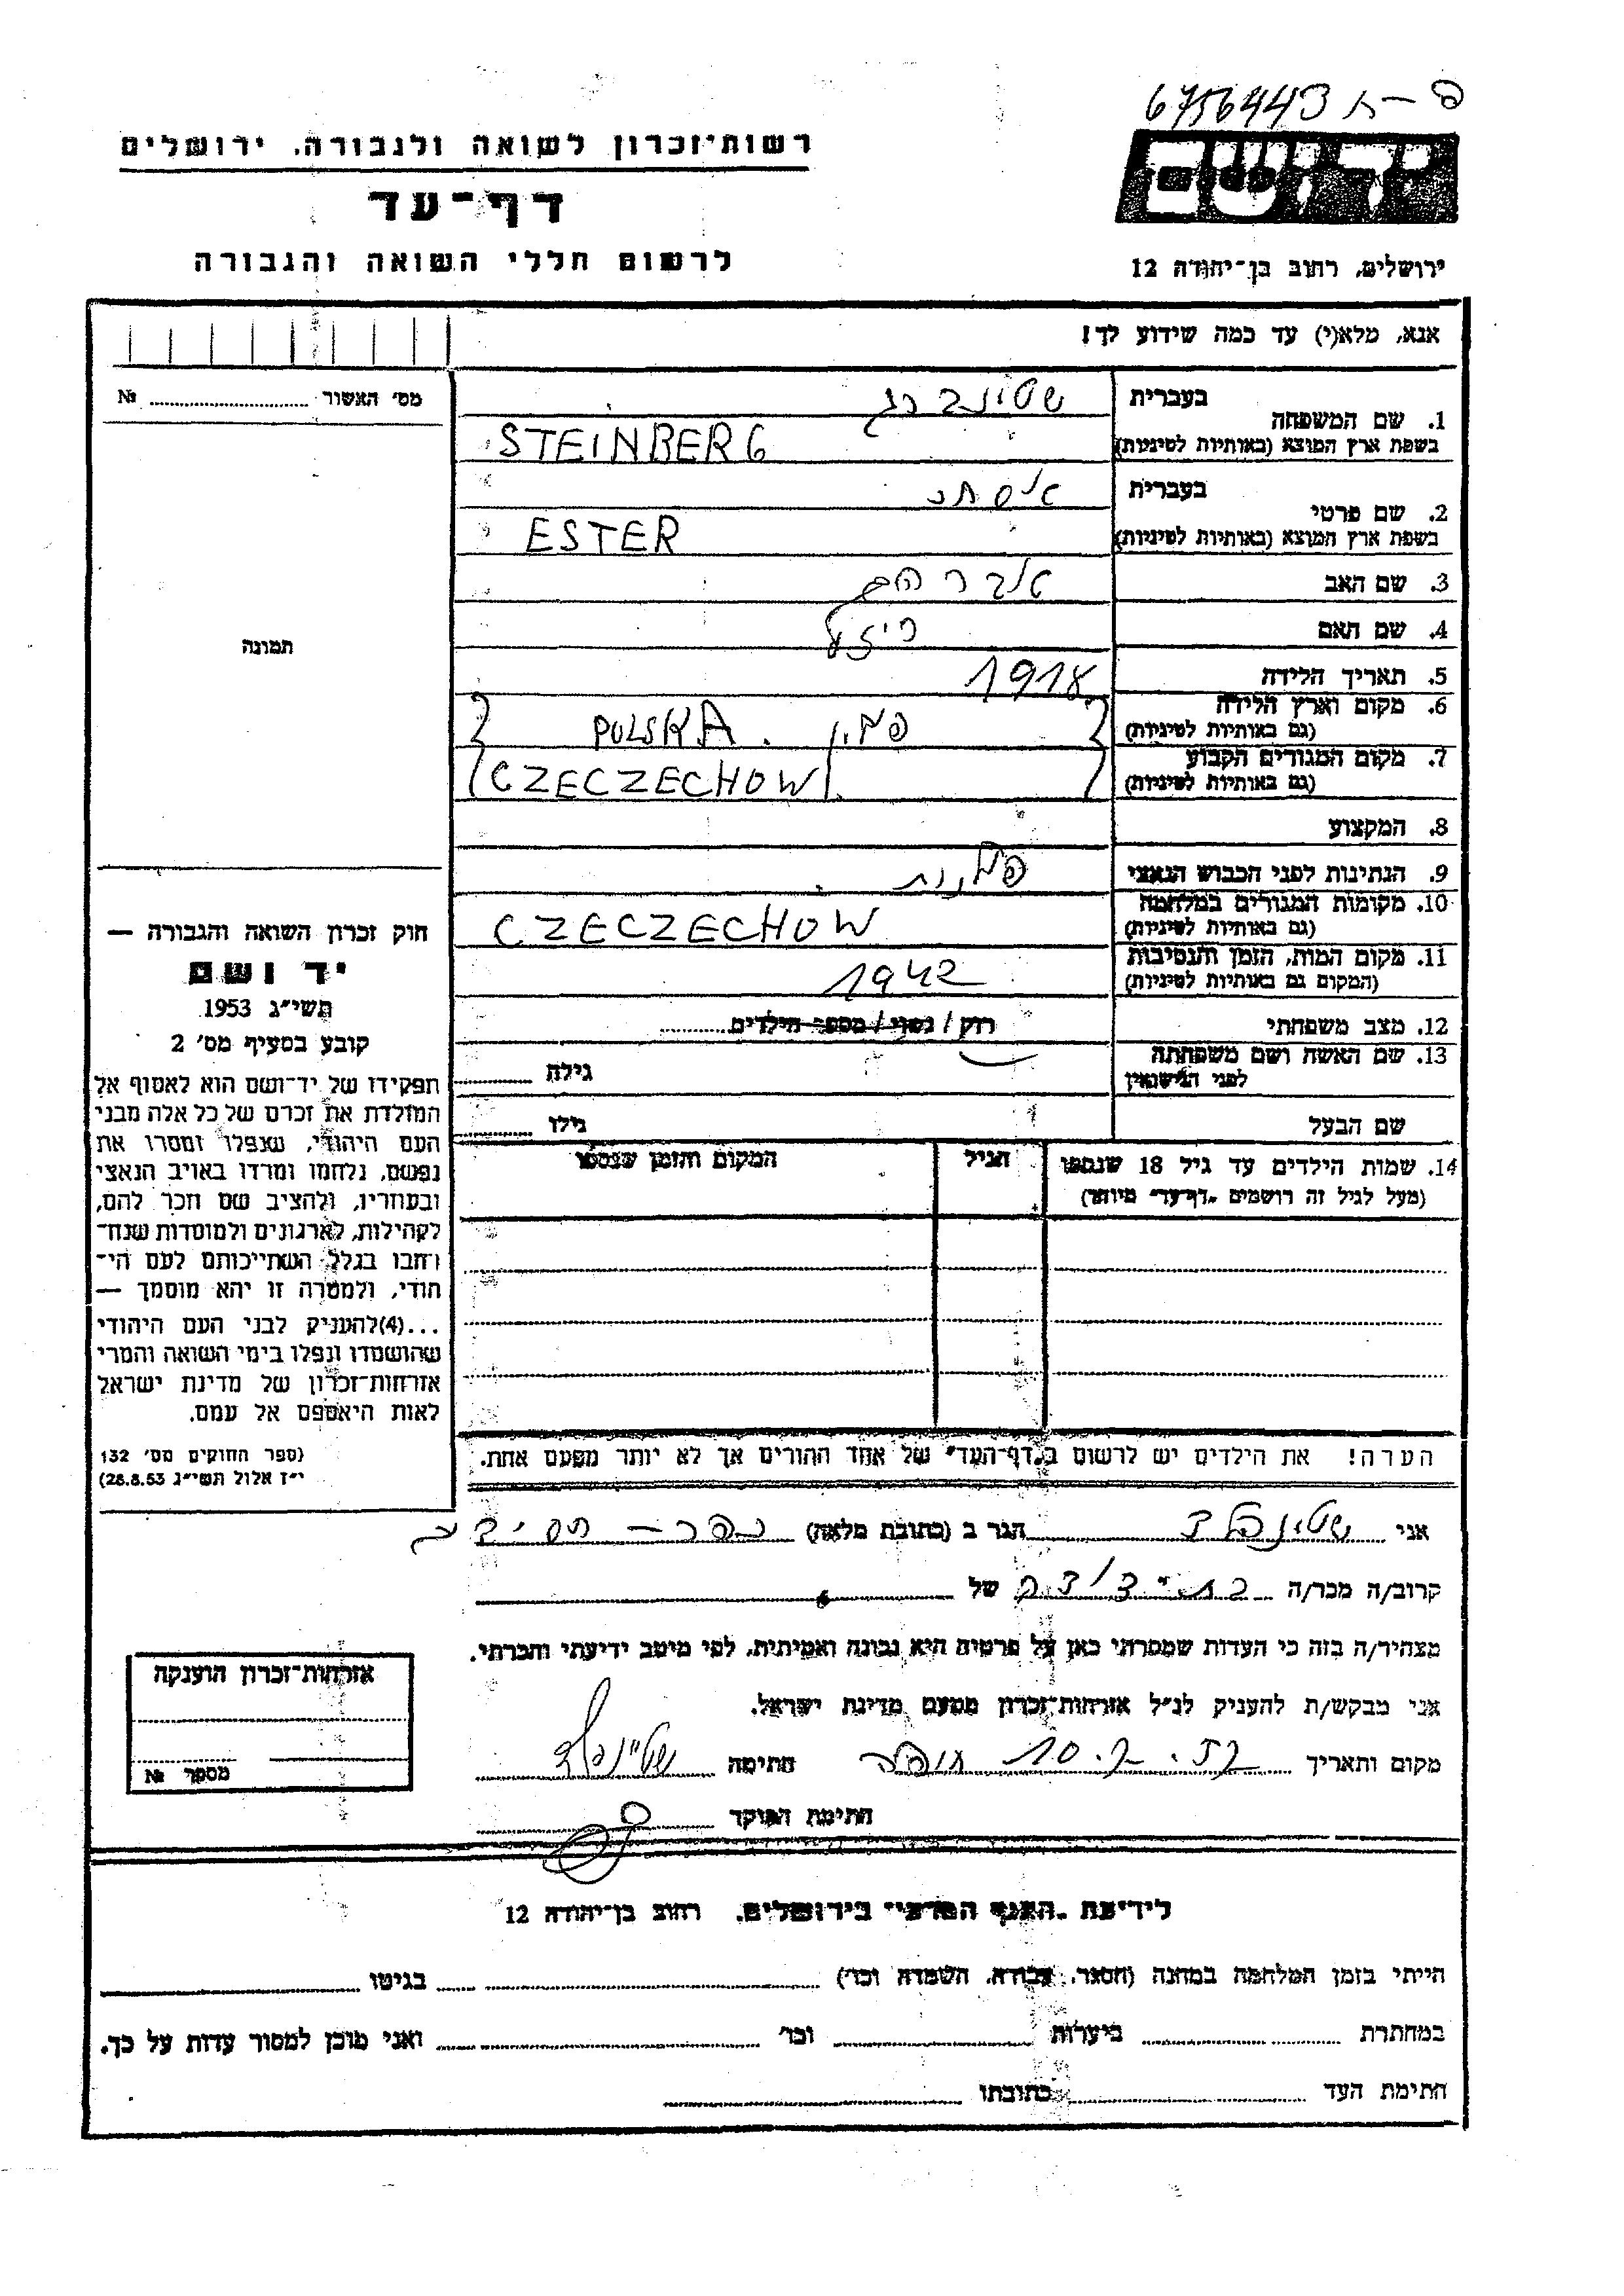 6756443 ת-פ
רשות־זכרון לשואה ולגבורה, ירושלים
יד ושם
דף־עד
לרשום חללי השואה והגבורה
ירושלים, רחוב בן־יהודה 12
אנא, מלא(י) עד כמה שידוע לך!
מס' האשור ........ №
1. שם המשפחה
בעברית
שטינברג
בשפת ארץ המוצא (באותיות לטיניות)
STEINBERG
2. שם פרטי
בעברית
אסתר
בשפת ארץ המוצא (באותיות לטיניות)
ESTER
3. שם האב
אברהם
4. שם האם
תמונה
5. תאריך הלידה
1918
6. מקום וארץ הלידה
(גם באותיות לטיניות)
פולין. POLSKA
7. מקום המגורים הקבוע
(גם באותיות לטיניות)
CZECZECHOW
8. המקצוע
9. הנתינות לפני הכבוש הנאצי
פולנית
10. מקומות המגורים במלחמה
(גם באותיות לטיניות)
CZECZECHOW
11. מקום המות, הזמן והנסיבות
(המקום גם באותיות לטיניות)
1942
12. מצב משפחתי
רוק / נשוי / מספר הילדים........
13. שם האשה ושם משפחתה
לפני הנישואין
גילה ........
שם הבעל
גילו ........
14. שמות הילדים עד גיל 18 שנספו
(מעל לגיל זה רושמים "דף־עד" מיוחד)
הגיל
המקום והזמן שנספו
חוק זכרון השואה והגבורה —
יד ושם
תשי"ג 1953
קובע בסעיף מס' 2
תפקידו של יד־ושם הוא לאסוף אל
המולדת את זכרם של כל אלה מבני
העם היהודי, שנפלו ומסרו את
נפשם, נלחמו ומרדו באויב הנאצי
ובעוזריו, ולהציב שם וזכר להם,
לקהילות, לארגונים ולמוסדות שנח־
רחבו בגלל השתייכותם לעם הי־
הודי, ולמטרה זו יהא מוסמך —
...(4)להעניק לבני העם היהודי
שהושמדו ונפלו בימי השואה והמרי
אזרחות־זכרון של מדינת ישראל
לאות היאספם אל עמם.
(ספר החוקים מס' 132
י"ז אלול תשי"ג 28.8.53)
הערה! את הילדים יש לרשום ב"דף־העד" של אחד ההורים אך לא יותר מפעם אחת.
אני שטינפלד הגר ב (כתובת מלאה)
קרוב/ה מכר/ה בת-דודה של
מצהיר/ה בזה כי העדות שמסרתי כאן על פרטיה היא נכונה ואמיתית, לפי מיטב ידיעתי והכרתי.
אני מבקש/ת להעניק לנ"ל אזרחות־זכרון מטעם מדינת ישראל.
מקום ותאריך 10. חתימה שטיינפלד
חתימת הפוקד
אזרחות־זכרון הוענקה
מספר №
לידיעת "האגף המדעי" בירושלים, רחוב בן־יהודה 12
הייתי בזמן המלחמה במחנה (הסגר, עבודה, השמדה וכו') ........ בגיטו ........
במחתרת ........ ביערות ........ וכו' ........ ואני מוכן למסור עדות על כך.
חתימת העד ........ כתובתו ........